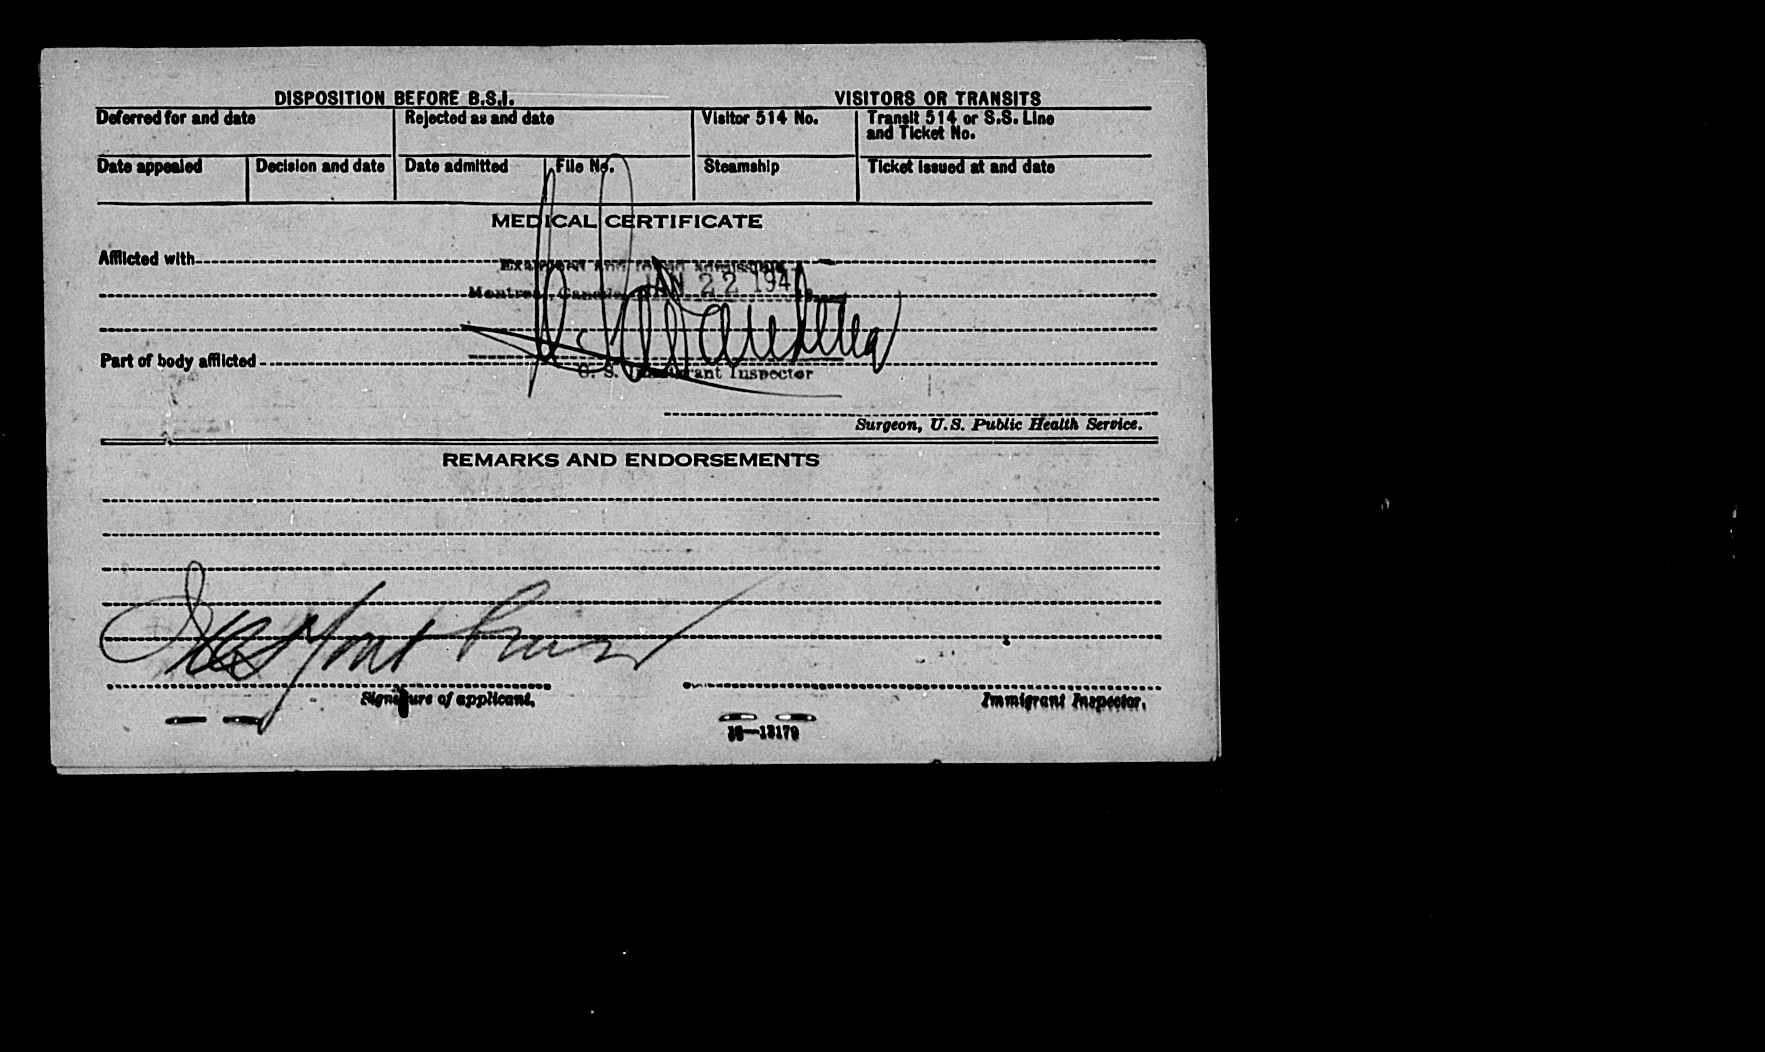 DISPOSITION BEFORE B.S.I. VISITORS OR TRANSITS
Deferred for and date Rejected as and date Visitor 514 No. Transit 514 or S.S. Line and Ticket No.
Date appealed Decision and date Date admitted File No. Steamship Ticket issued at and date
MEDICAL CERTIFICATE
Afflicted with
Examined and found admissible
Montreal, Canada JAN 22 194
Part of body afflicted
U. S. Immigrant Inspector
Surgeon, U.S. Public Health Service.
REMARKS AND ENDORSEMENTS
Signature of applicant.
Immigrant Inspector.
16—13179